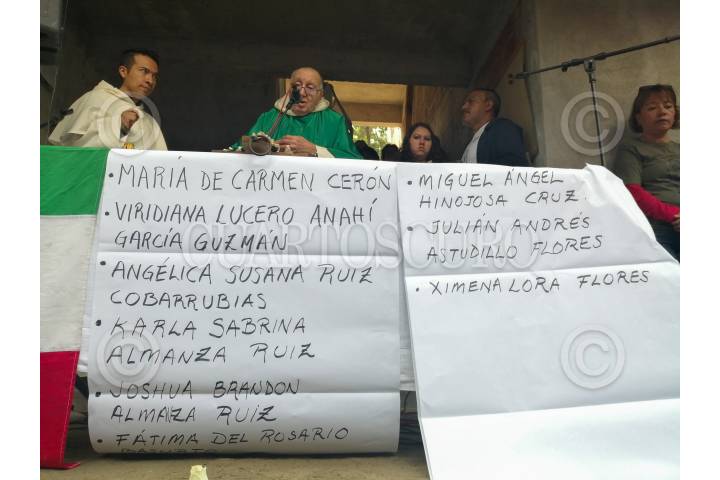 • MARÍA DE CARMEN CERÓN
• VIRIDIANA LUCERO ANAHÍ
GARCÍA GUZMÁN
• ANGÉLICA SUSANA RUIZ
COBARRUBIAS
• KARLA SABRINA
ALMANZA RUIZ
• JOSHUA BRANDON
ALMAZA RUIZ
• FÁTIMA DEL ROSARIO
• MIGUEL ÁNGEL
HINOJOSA CRUZ
• JULIÁN ANDRÉS
ASTUDILLO FLORES
• XIMENA LORA FLORES
CUARTOSCURO
©
©
©
©